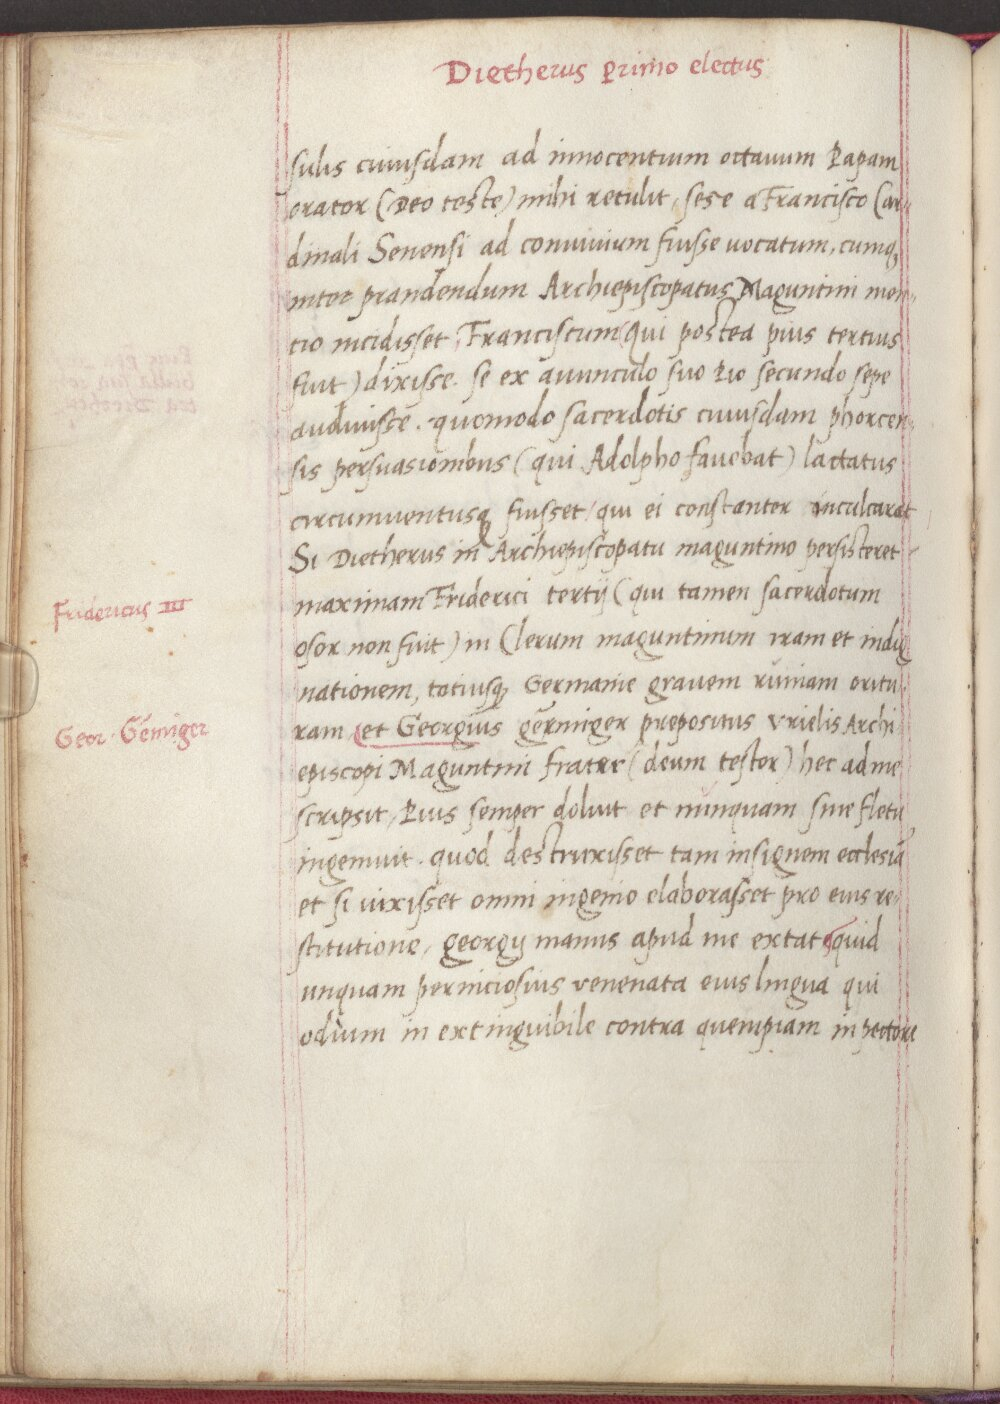 Dietherus Primo electus
sulis cuiusdam ad innocentium octauum Papam
orator (Deo teste) mihi retulit, sese a Francisco Car-
dinali Senensi ad conuiuium fuisse uocatum, cumq;
inter prandendum Archiepiscopatus Maguntini men-
tio incidisset, Franciscum (qui postea pius tertius
fuit) dixisse. se ex auunculo suo Pio secundo sepe
audiuisse. quomodo sacerdotis cuiusdam phorcen-
sis persuasionibus (qui Adolpho favebat) lactatus
circumuentusq; fuisset, qui ei constanter inculcarat
Si Dietherus in Archiepiscopatu maguntino persisteret
Fridericus III
maximam Friderici tertij (qui tamen sacerdotum
osor non fuit) in Clerum maguntinum iram et indig
nationem, totiusq; Germanie gravem ruinam oritu-
Geor. Gemiger
ram et Georgius gemiger prepositus vrielis Archi
episcopi Maguntini frater (deum testor) hec ad me
scripsit, Pius semper doluit et nunquam sine fletu
ingemuit. quod destruxisset tam insignem ecclesiā
et si uixisset omni ingenio elaborasset pro eius re-
stitutione, georgij manus apud me extat quid
unquam perniciosius venenata eius lingua qui
odium in extinguibile contra quempiam in pectore